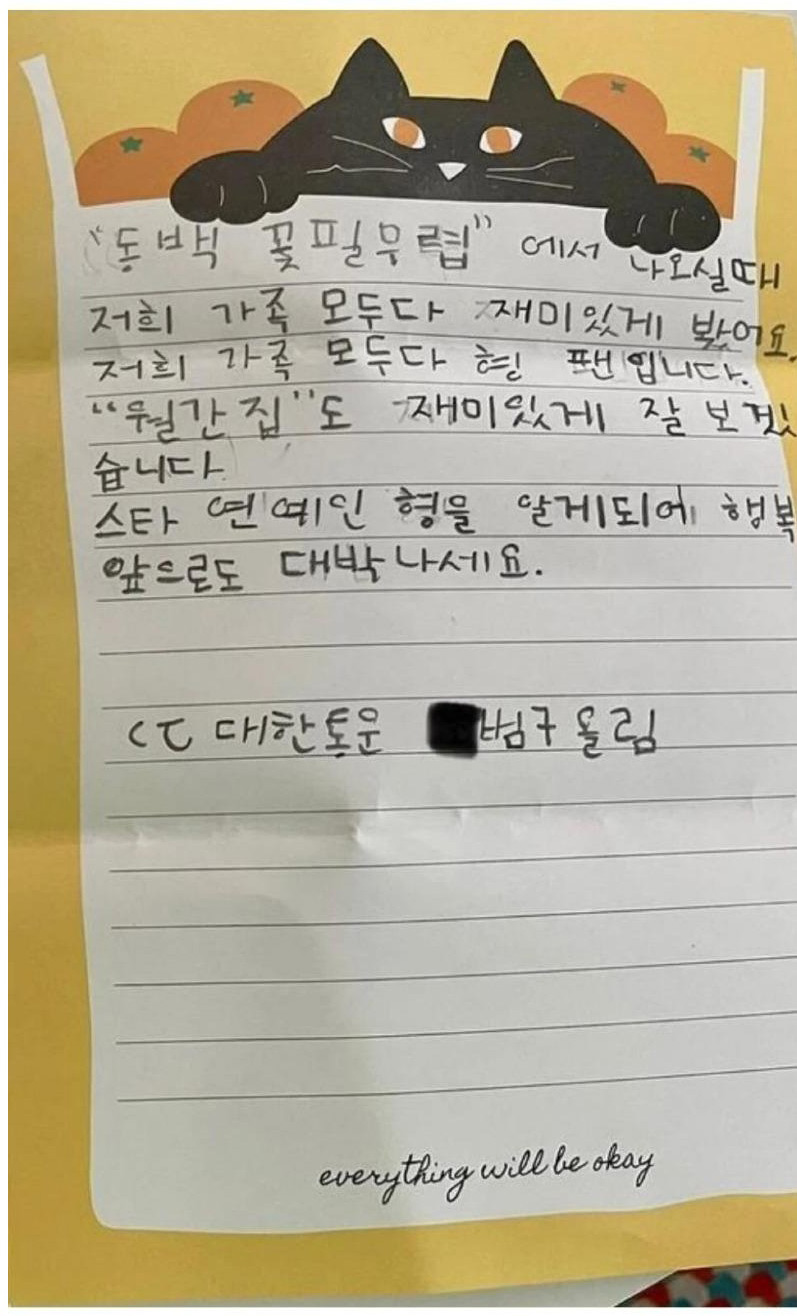 "동백 꽃필우렵" 에서 나오실때
저희 가족 모두다 재미있게 봤어요.
저희 가족 모두다 형 팬입니다.
"월간집"도 재미있게 잘 보겠
습니다
스타 연예인 형을 알게되어 행복
앞으로도 대박나세요.
CJ 대한통운 범구올림
everything will be okay